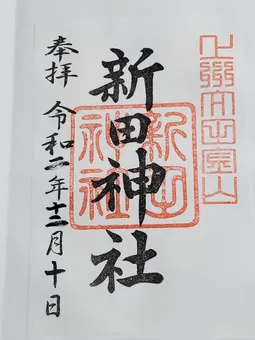 新田神社
新田
神社
奉拝
令和二年十二月十日